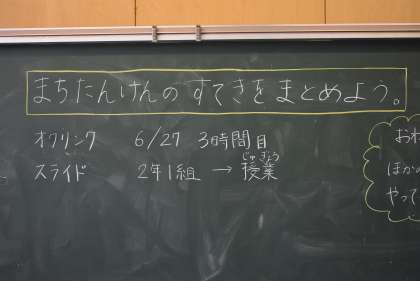 まちたんけんの すてきを まとめよう。
オクリンク 6/27 3時間目
スライド 2年1組 → 授業
じゅぎょう
おわ
ほかの
やって